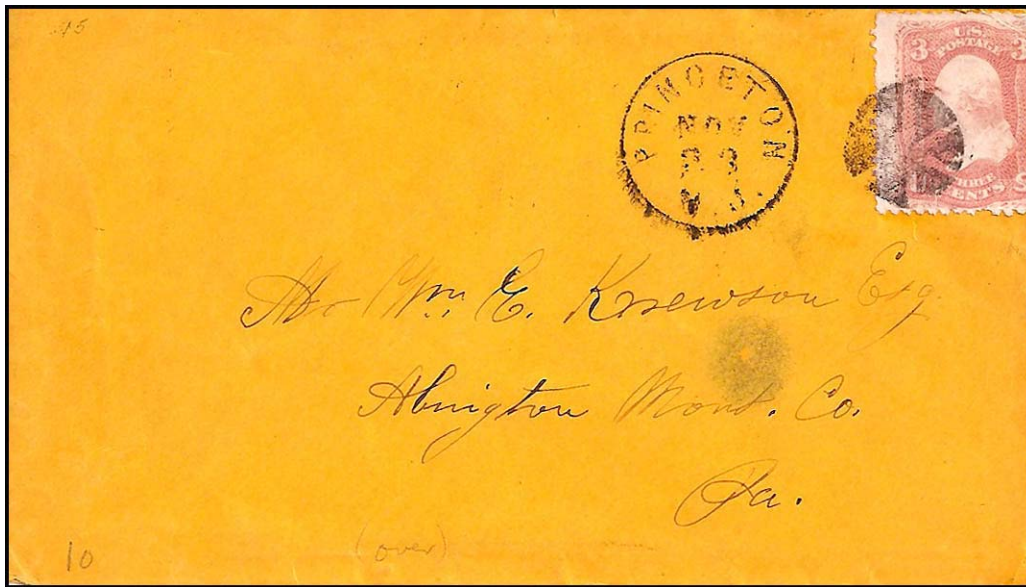 15
PRINCETON
NOV
23
N.J.
3 U.S. POSTAGE 3
THREE CENTS
Mr Wm. E. Knewson Esq.
Abington Mont. Co.
Pa.
10 (over)